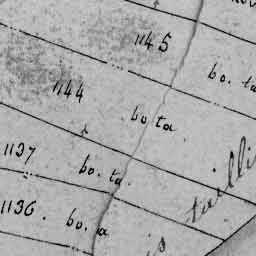 1145
bo. ta
1144
bo ta
1137
bo. ta.
1136. bo. a